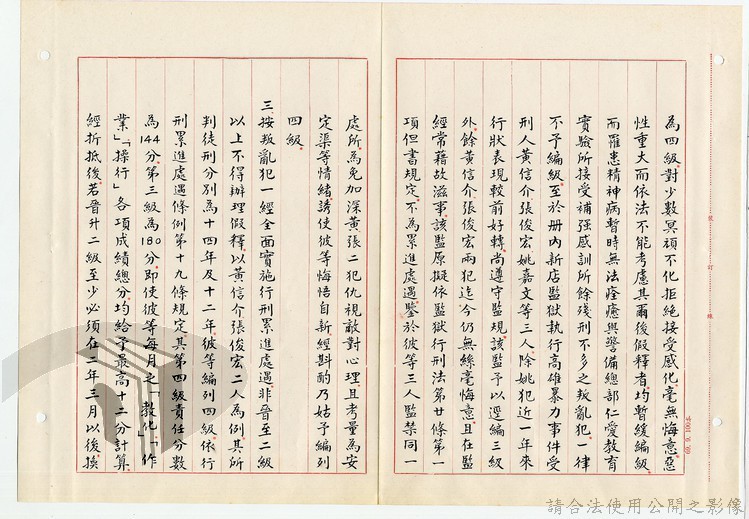 為四級對少數冥頑不化拒絕接受感化毫無悔意惡
性重大而依法不能考慮其爾後假釋者均暫緩編級
而罹患精神病暫時無法痊癒與警備總部仁愛教育
實驗所接受補強感訓所餘殘刑不多之叛亂犯一律
不予編級至於冊內新店監獄執行高雄暴力事件受
刑人黃信介張俊宏姚嘉文等三人除姚犯近一年來
行狀表現較前好轉尚遵守監規該監予以逕編三級
外餘黃信介張俊宏兩犯迄今仍無絲毫悔意且在監
經常藉故滋事該監原擬依監獄行刑法第廿條第一
項但書規定不為累進處遇鑒於彼等三人監禁同一
處所為免加深黃張二犯仇視敵對心理且考量為安
定渠等情緒誘使彼等悔悟自新經斟酌乃姑予編列
四級
三按叛亂犯一經全面實施行刑累進處遇非晉至二級
以上不得辦理假釋以黃信介張俊宏二人為例其所
判徒刑分別為十四年及十二年彼等編列四級依行
刑累進處遇條例第十九條規定其第四級責任分數
為144分第三級為180分即使彼等每月之「教化」「作
業」「操行」各項成績總分均給予最高十二分計算
經折抵後若晉升二級至少必須在二年三月以後換
裝
訂
線
請合法使用公開之影像